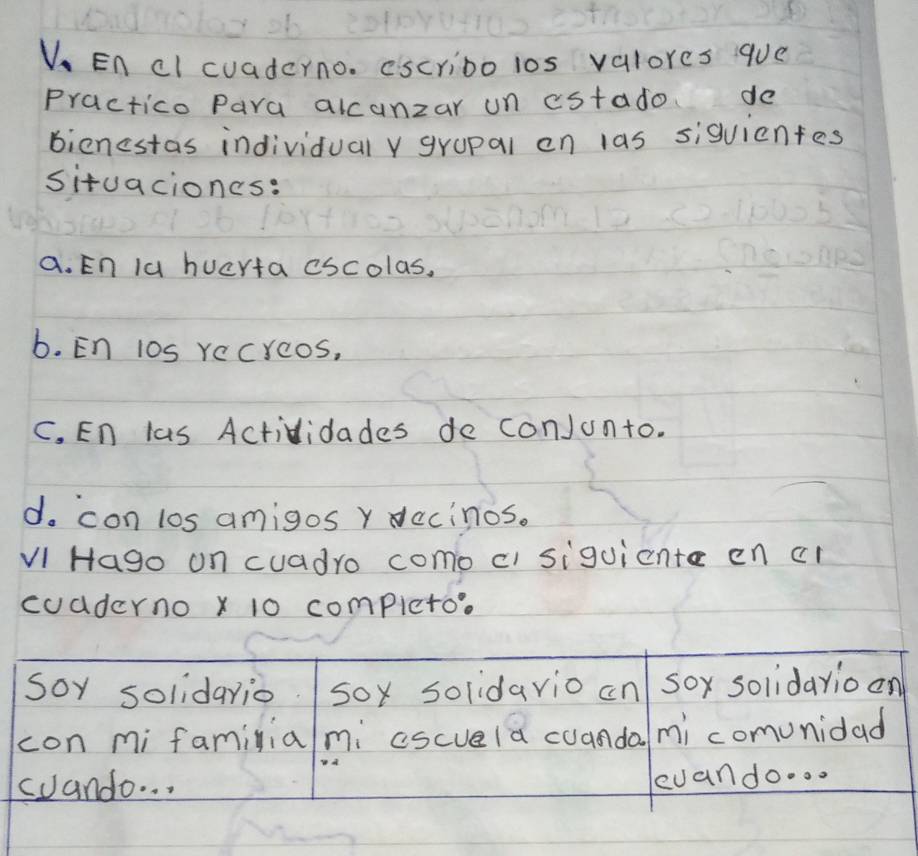 V. En el cuaderno. escribo los valores que
Practico Para alcanzar un estado de
bienestas individual y grupal en las siguientes
situaciones:
a. En la huerta escolas.
b. En los recreos.
c. En las Actividades de conjunto.
d. con los amigos y vecinos.
VI Hago un cuadro como el siguiente en el
cuaderno y lo completo:
Soy solidario
con mi familia
cuando...
soy solidario en
mi escuela cuando
..
soy solidario en
mi comunidad
cuando...